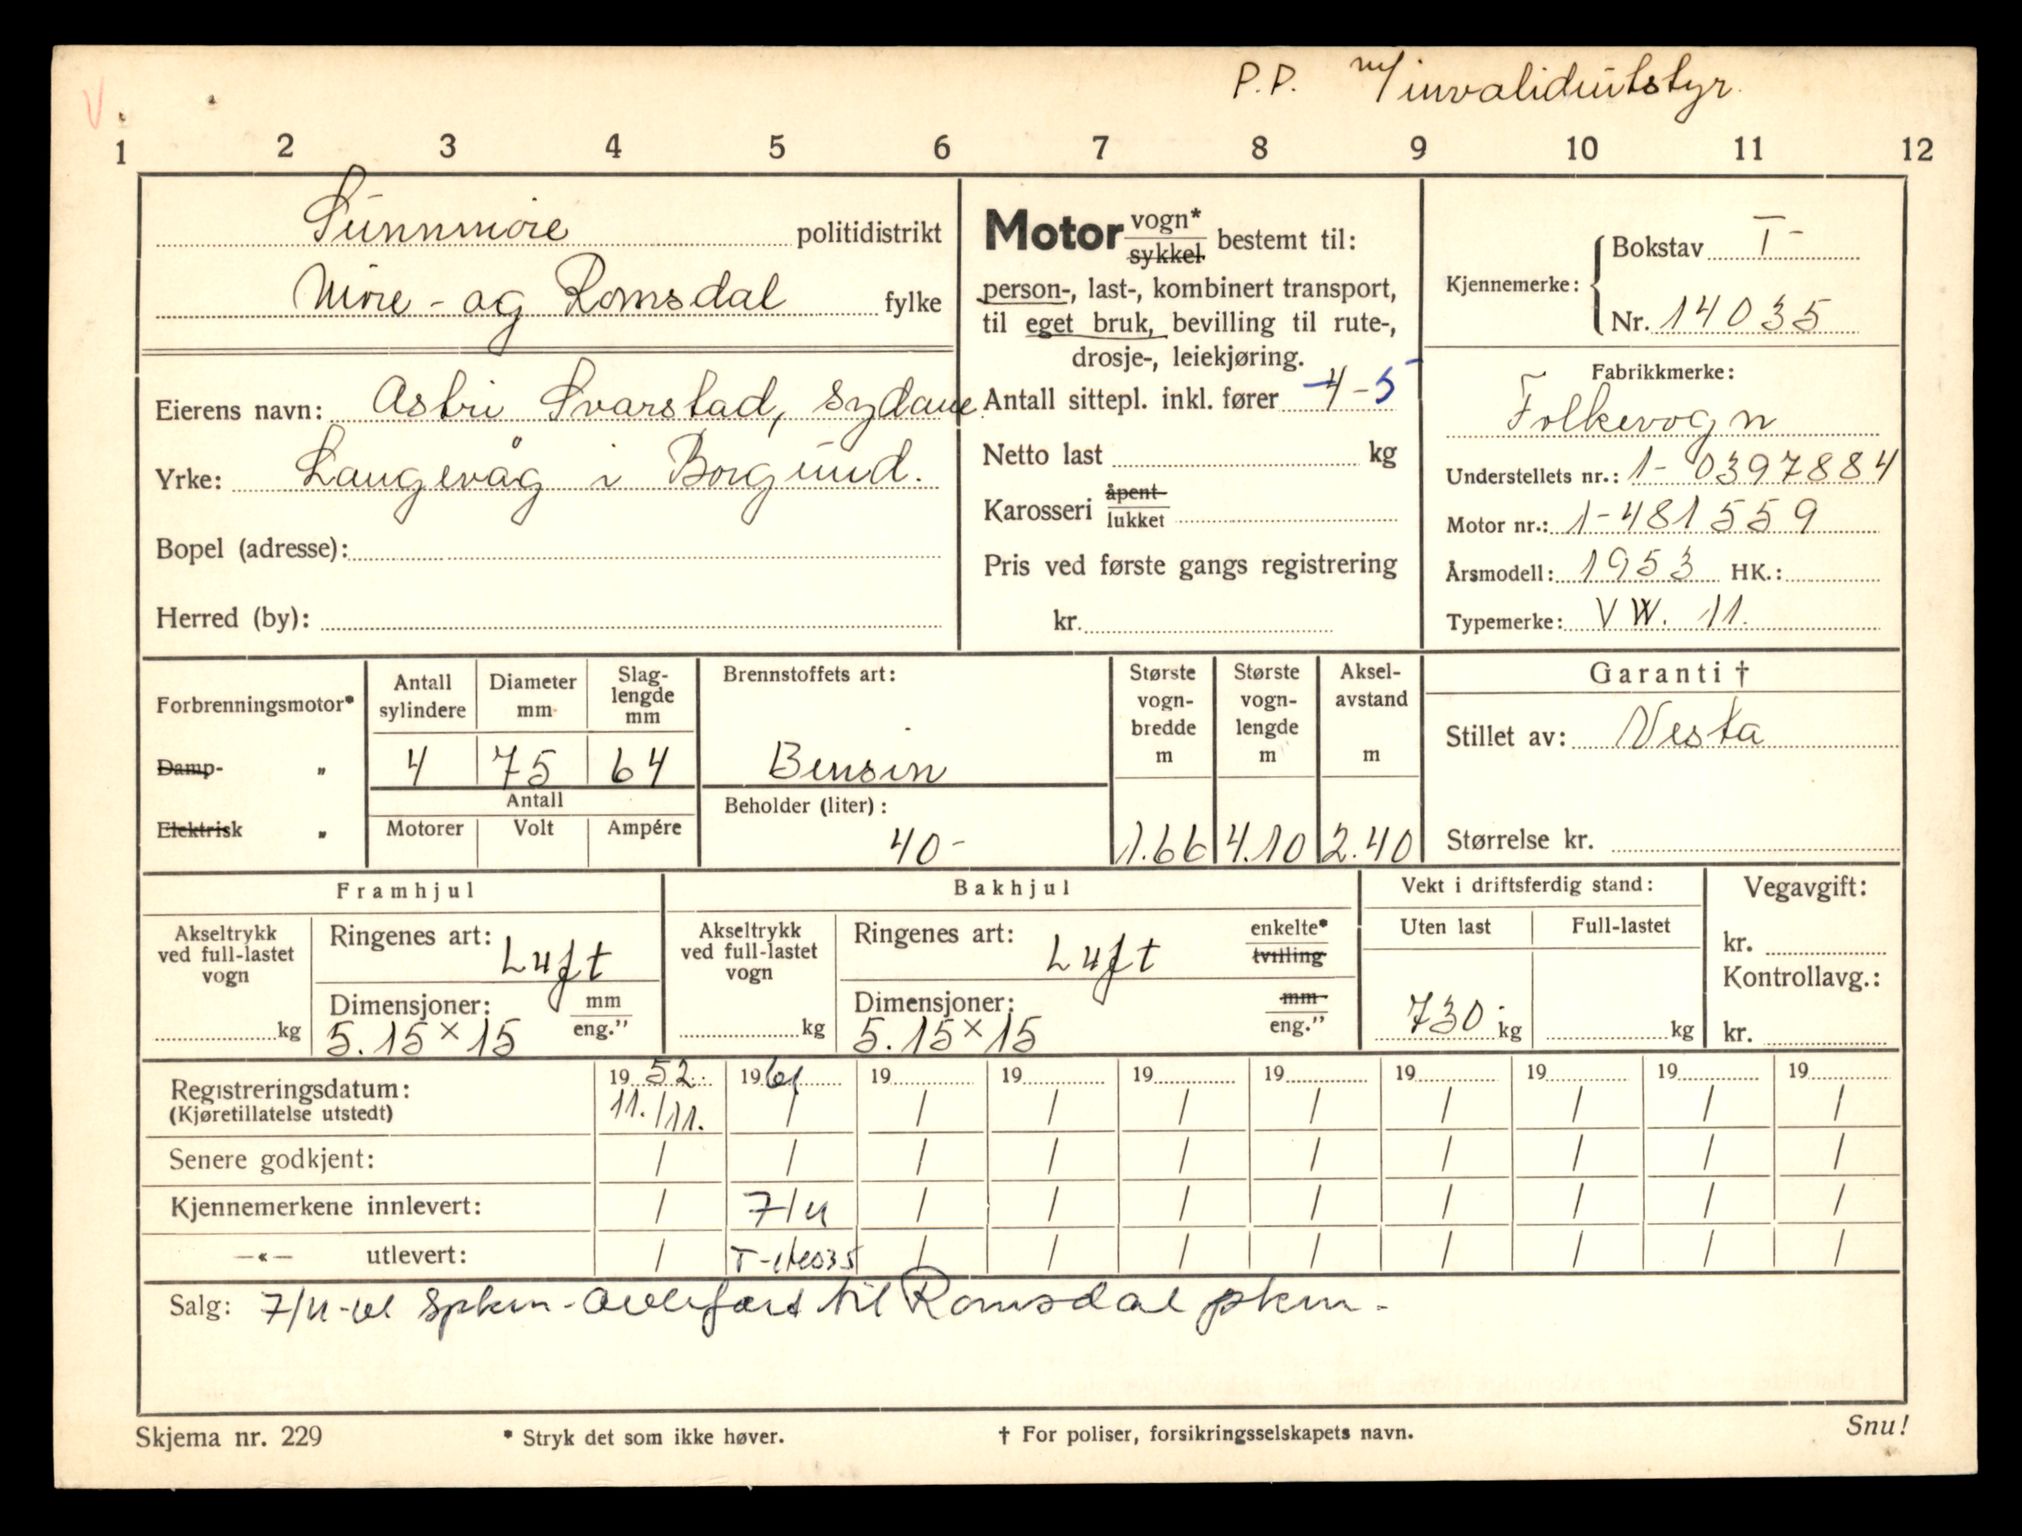 V
P.P. m/invalidutstyr.
1 2 3 4 5 6 7 8 9 10 11 12
Sunnmøre politidistrikt
Møre - og Romsdal fylke
Eierens navn: Astri Svarstad, Sydame
Yrke: Langevåg i Borgund.
Bopel (adresse):
Herred (by):
Motor vogn* sykkel bestemt til:
person-, last-, kombinert transport,
til eget bruk, bevilling til rute-,
drosje-, leiekjøring.
Antall sittepl. inkl. fører 4-5
Netto last kg
Karosseri åpent lukket
Pris ved første gangs registrering
kr.
Kjennemerke: Bokstav T-
Nr. 14035
Fabrikkmerke:
Folkevogn
Understellets nr.: 1-0397884
Motor nr.: 1-481559
Årsmodell: 1953 HK.:
Typemerke: VW. 11.
Forbrenningsmotor*
Damp- „
Elektrisk „
Antall sylindere Diameter mm Slag-lengde mm
4 75 64
Antall
Motorer Volt Ampére
Brennstoffets art:
Bensin
Beholder (liter):
40-
Største vogn-bredde m
1.66
Største vogn-lengde m
4.10
Aksel-avstand m
2.40
Garanti †
Stillet av: Vesta
Størrelse kr.
Framhjul
Akseltrykk ved full-lastet vogn
kg
Ringenes art: Luft
Dimensjoner: mm eng."
5.15×15
Bakhjul
Akseltrykk ved full-lastet vogn
kg
Ringenes art: Luft enkelte* tvilling
Dimensjoner: mm eng."
5.15×15
Vekt i driftsferdig stand:
Uten last Full-lastet
730 kg kg
Vegavgift:
kr.
Kontrollavg.:
kr.
19 52 19 61 19 19 19 19 19 19 19 19
Registreringsdatum: 11./11. / / / / / / / / /
(Kjøretillatelse utstedt)
Senere godkjent: / / / / / / / / / /
Kjennemerkene innlevert: / 7/4 / / / / / / / /
—«— utlevert: / T-14035 / / / / / / / /
Salg: 7/4-61 Spkm-overført til Romsdal pkm-
Skjema nr. 229
* Stryk det som ikke høver.
† For poliser, forsikringsselskapets navn.
Snu!